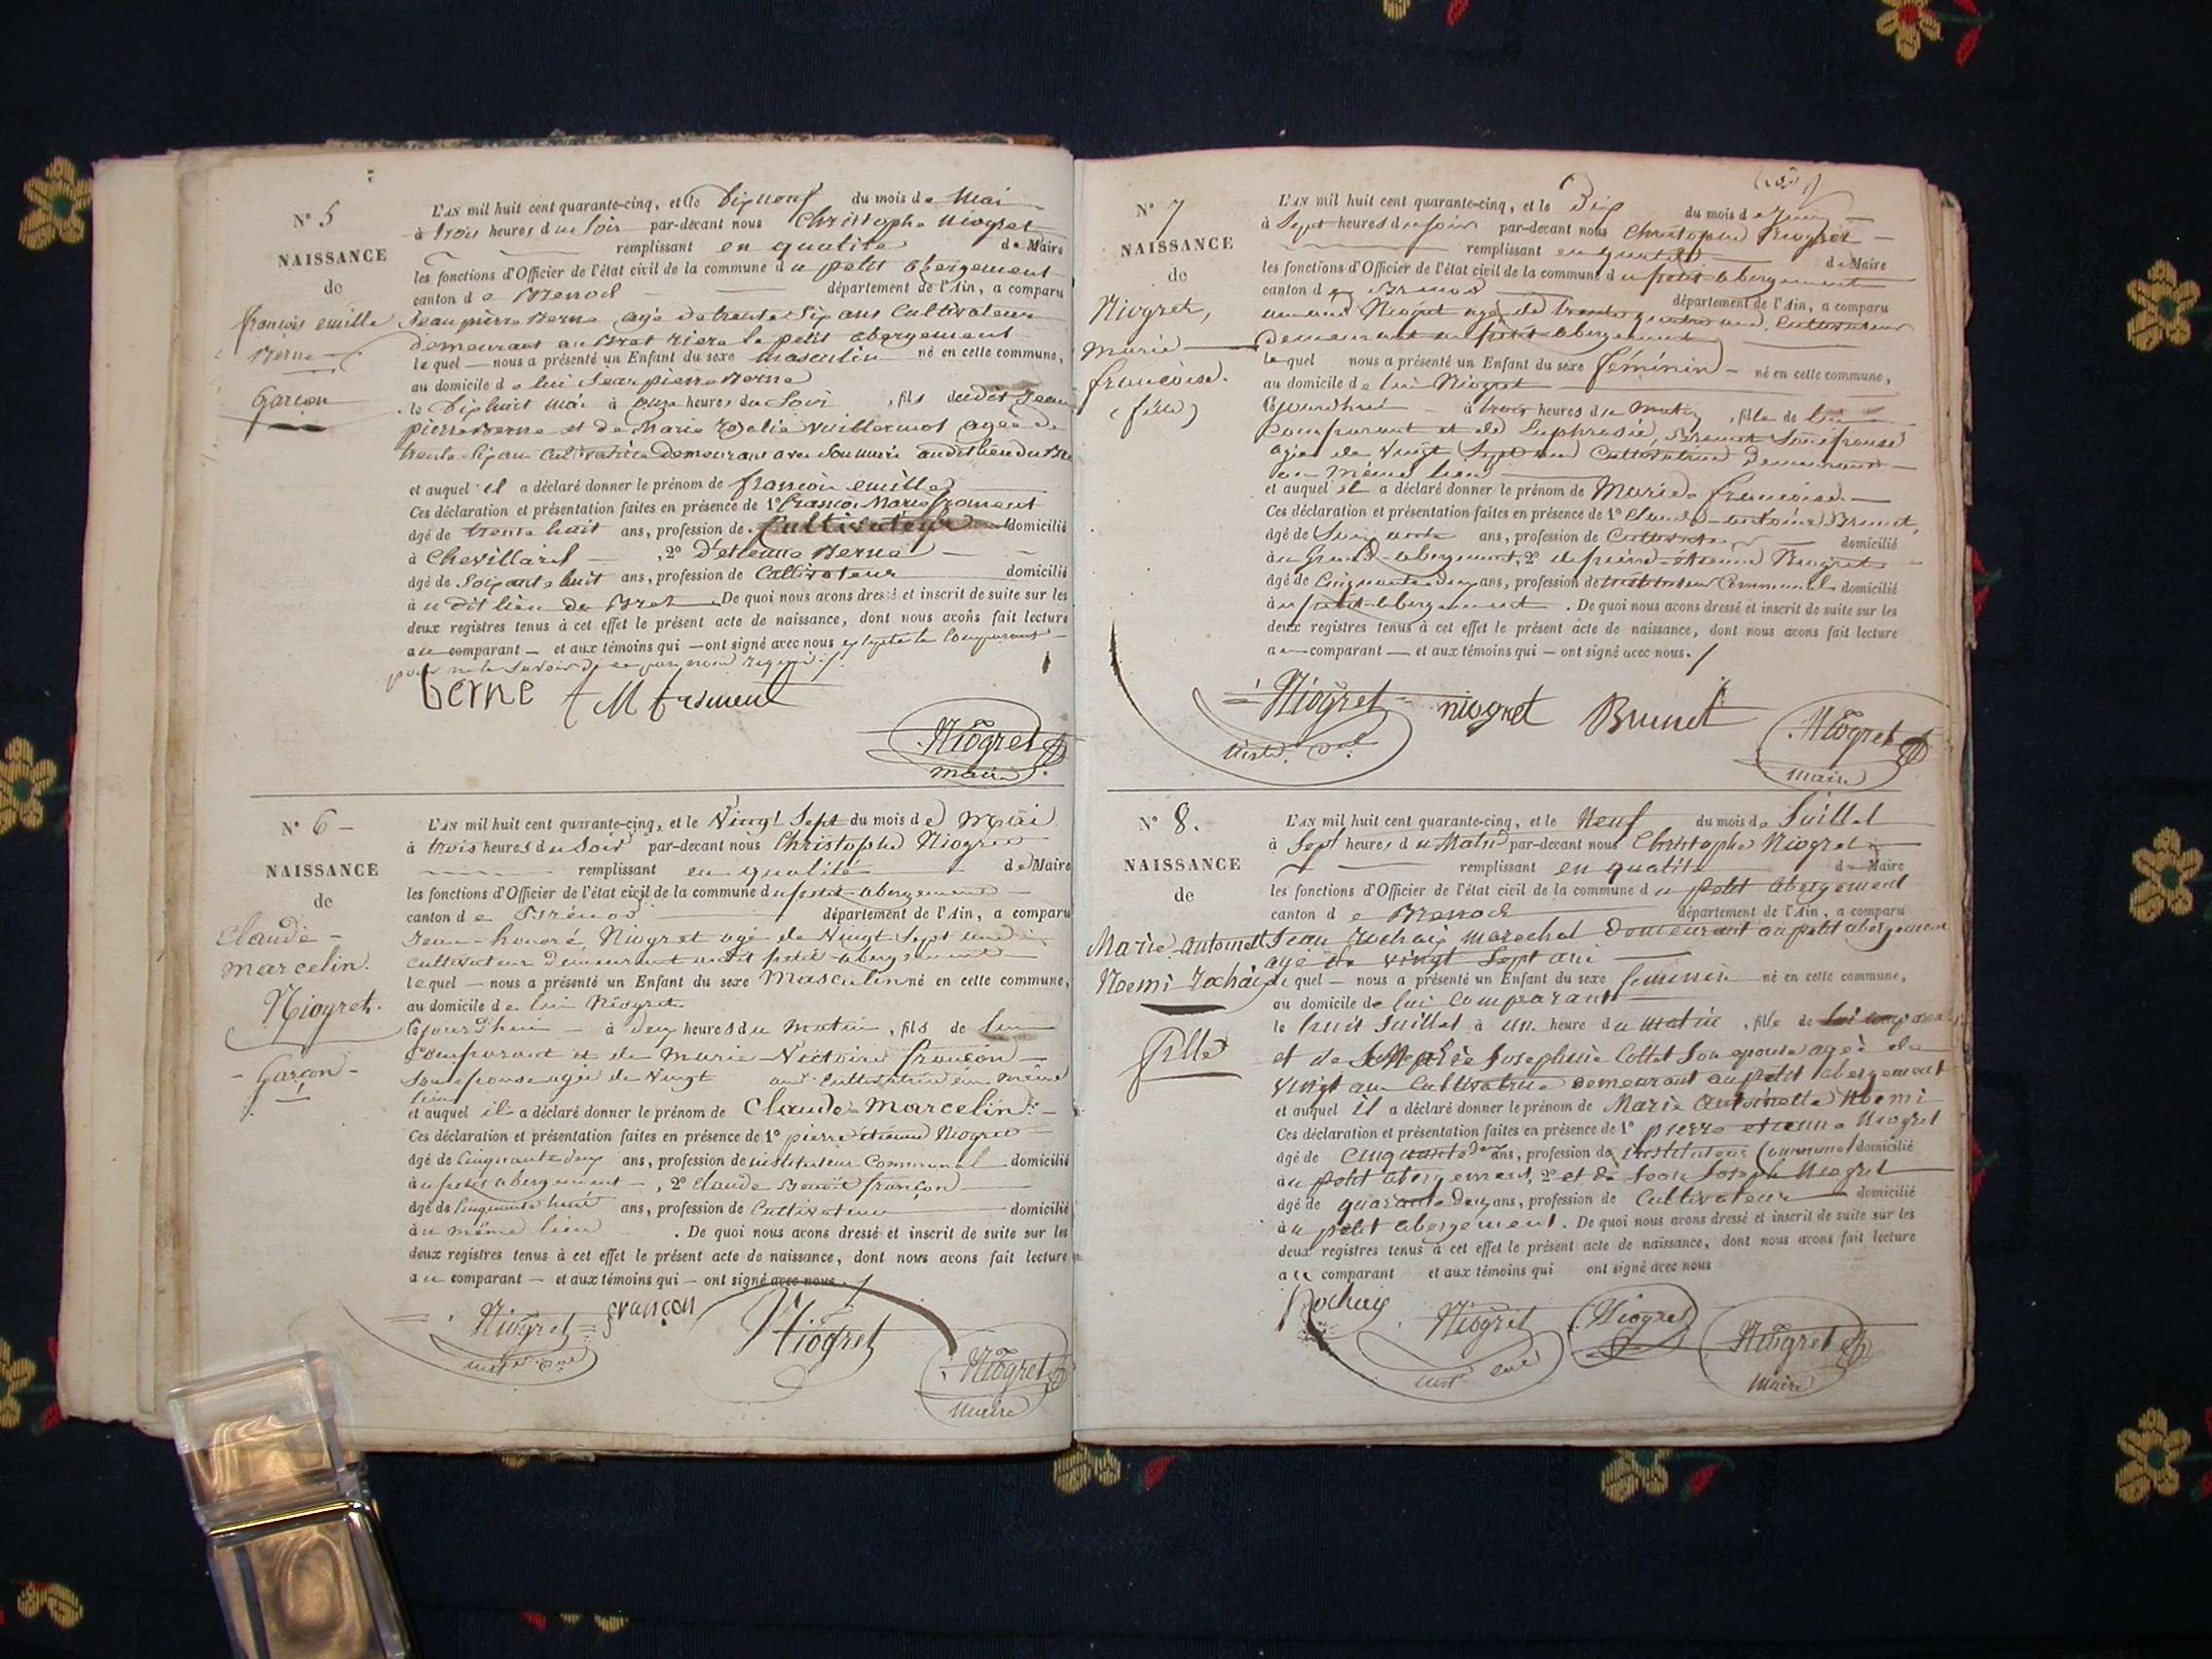 N° 5
NAISSANCE
de
françois emille
Berne
Garçon
L'AN mil huit cent quarante-cinq, et le Dixneuf du mois de Mai
à trois heures du Soir par-devant nous Christophe Niogret
remplissant en qualité de Maire
les fonctions d'Officier de l'état civil de la commune du petit abergement
canton de Brenod département de l'Ain, a comparu
Jean pierre Berne agé de trente Six ans Cultivateur
demeurant au Bret riere le petit abergement
lequel nous a présenté un Enfant du sexe masculin né en cette commune,
au domicile de lui Jean pierre Berne
le Dixhuit mai à onze heures du Soir, fils dudit Jean
pierre Berne et de Marie Rosalie Vuillermot agée de
trente Six ans Cultivatrice demeurant avec Son mari audit lieu du Bret
et auquel il a déclaré donner le prénom de françois emille
Ces déclaration et présentation faites en présence de 1° françois Marie froment
âgé de trente huit ans, profession de Cultivateur domicilié
à Chevillard, 2° D'etienne Berne
âgé de Soixante huit ans, profession de Cultivateur domicilié
au dit lieu du Bret. De quoi nous avons dressé et inscrit de suite sur les
deux registres tenus à cet effet le présent acte de naissance, dont nous avons fait lecture
au comparant et aux témoins qui ont signé avec nous excepté le Comparant
pour ne le Savoir de ce requis
berne f M froment
Niogret
maire
N° 6
NAISSANCE
de
Claude
marcelin.
Niogret.
Garçon
L'AN mil huit cent quarante-cinq, et le Vingt Sept du mois de Mai
à trois heures du Soir par-devant nous Christophe Niogret
remplissant en qualité de Maire
les fonctions d'Officier de l'état civil de la commune du petit abergement
canton de Brénod département de l'Ain, a comparu
Jean-honoré Niogret agé de Vingt Sept ans
cultivateur demeurant audit petit abergement
lequel nous a présenté un Enfant du sexe Masculin né en cette commune,
au domicile de lui Niogret
Cejourd'hui à deux heures du matin, fils de lui
Comparant et de Marie Victoire françon
Son épouse agée de Vingt ans Cultivatrice en même
lieu
et auquel il a déclaré donner le prénom de Claude Marcelin
Ces déclaration et présentation faites en présence de 1° pierre étienne Niogret
âgé de Cinquante deux ans, profession de instituteur Communal domicilié
au petit abergement, 2° Claude Benoit françon
âgé de Cinquante huit ans, profession de Cultivateur domicilié
au même lieu. De quoi nous avons dressé et inscrit de suite sur les
deux registres tenus à cet effet le présent acte de naissance, dont nous avons fait lecture
au comparant et aux témoins qui ont signé avec nous.
Niogret françon Niogret
Niogret
maire
N° 7
NAISSANCE
de
Niogret,
Marie
françoise.
(fille)
L'AN mil huit cent quarante-cinq, et le Dix du mois de Juin
à Sept heures du Soir par-devant nous Christophe Niogret
remplissant en qualité de Maire
les fonctions d'Officier de l'état civil de la commune du petit abergement
canton de Brenod département de l'Ain, a comparu
Niogret agé de trente quatre ans, Cultivateur
Demeurant au petit abergement
lequel nous a présenté un Enfant du sexe féminin né en cette commune,
au domicile de lui Niogret
Cejourdhui à trois heures du Matin, fille de lui
Comparant et de Euphrasie Brunet Son épouse
agée de Vingt Sept ans Cultivatrice Demeurant
au même lieu
et auquel il a déclaré donner le prénom de Marie françoise.
Ces déclaration et présentation faites en présence de 1° Claude-antoine Brunet,
âgé de Soixante ans, profession de Cultivateur domicilié
au Grand-abergement, 2° de pierre-étienne Niogret
âgé de Cinquante deux ans, profession de instituteur Communal domicilié
au petit abergement. De quoi nous avons dressé et inscrit de suite sur les
deux registres tenus à cet effet le présent acte de naissance, dont nous avons fait lecture
au comparant et aux témoins qui ont signé avec nous.
Niogret niogret Brunet
Niogret
maire
N° 8.
NAISSANCE
de
Marie antoinett
Noemi Rochaix
fille
L'AN mil huit cent quarante-cinq, et le Neuf du mois de Juillet
à Sept heures du Matin par-devant nous Christophe Niogret
remplissant en qualité de Maire
les fonctions d'Officier de l'état civil de la commune du petit abergement
canton de Brenod département de l'Ain, a comparu
Jean Rochaix marechal Demeurant au petit abergement
agé de vingt Sept ans
lequel nous a présenté un Enfant du sexe feminin né en cette commune,
au domicile de lui Comparant
le huit Juillet à un heure du matin, fille de lui comparant
et de Josephine Collet Son epouse agée de
vingt ans Cultivatrice demeurant au petit abergement
et auquel il a déclaré donner le prénom de Marie Antoinette Noemi
Ces déclaration et présentation faites en présence de 1° pierre etienne Niogret
âgé de cinquante deux ans, profession de instituteur Communal domicilié
au petit abergement, 2° et de Jean Joseph Niogret
âgé de quarante deux ans, profession de Cultivateur domicilié
au petit abergement. De quoi nous avons dressé et inscrit de suite sur les
deux registres tenus à cet effet le présent acte de naissance, dont nous avons fait lecture
au comparant et aux témoins qui ont signé avec nous
Rochaix Niogret Niogret Niogret
maire